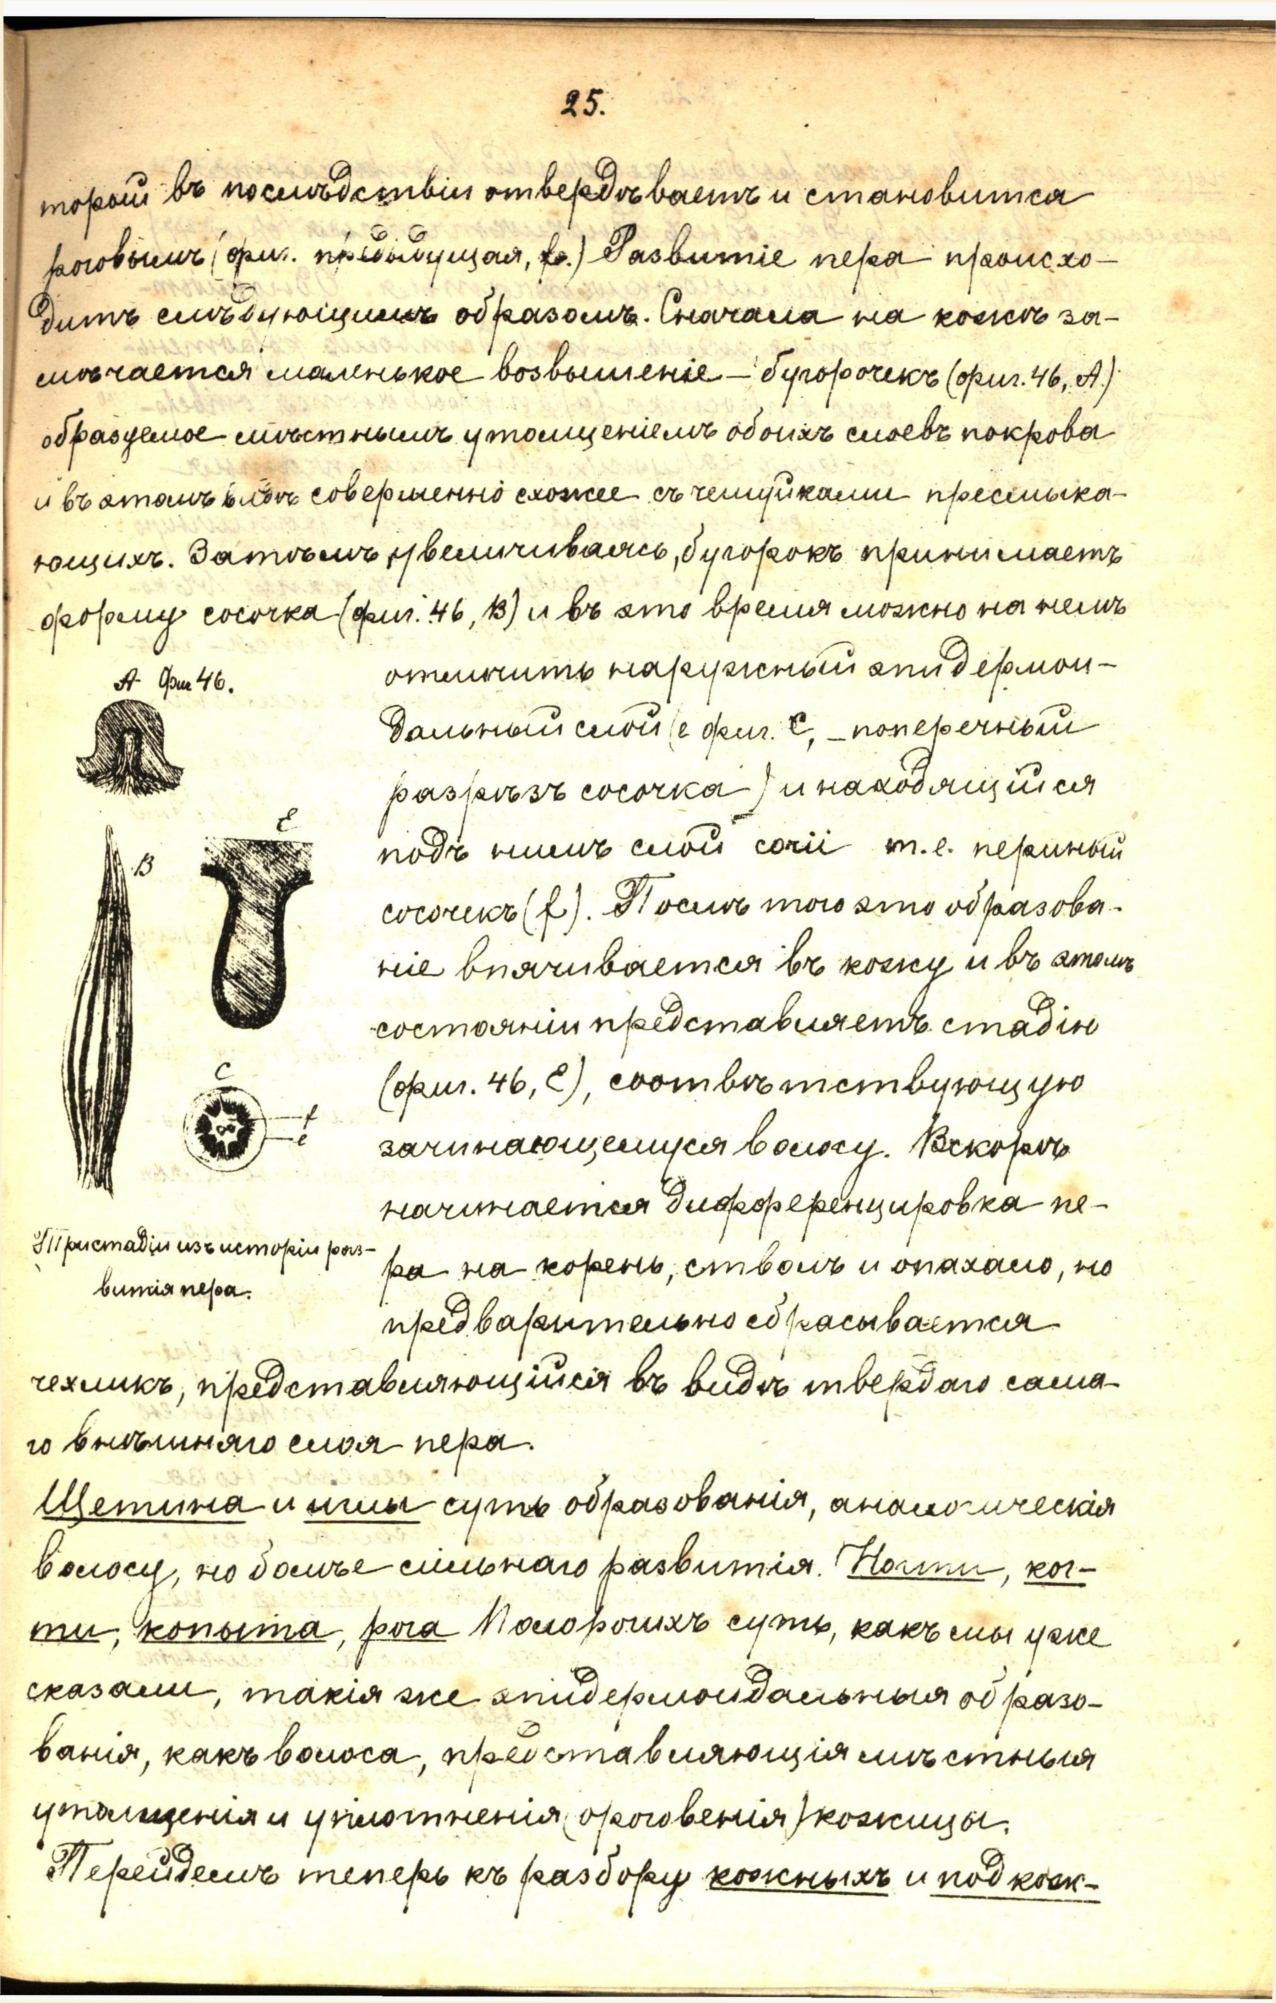 25.
торой въ послѣдствіи отвердѣваетъ и становится
роговымъ (фиг. предыдущая, f.) Развитіе пера происхо-
дитъ слѣдующимъ образомъ. Сначала на кожѣ за-
мѣчается маленькое возвышеніе — бугорочекъ (фиг. 46, А.)
образуемое мѣстнымъ утолщеніемъ обоихъ слоевъ покрова
и въ этомъ совершенно схожее съ чешуйками пресмыка-
ющихъ. Затѣмъ увеличиваясь, бугорокъ принимаетъ
форму сосочка (фиг. 46, В) и въ это время можно на немъ
А Фиг 46.
отличить наружный эпидермои-
дальный слой (е фиг. С, — поперечный
разрѣзъ сосочка) и находящійся
Е
В
подъ нимъ слой coriі т.е. перяный
сосочекъ (f). Послѣ того это образова-
ніе впячивается въ кожу и въ этомъ
состояніи представляетъ стадію
(фиг. 46, Е), соотвѣтствующую
С
f
е
зачинающемуся волосу. Вскорѣ
начинается дифференцировка пе-
ра на корень, стволъ и опахало, но
Три стадіи изъ исторіи раз-
витія пера.
предварительно сбрасывается
чехликъ, представляющійся въ видѣ твердаго сама-
го внѣшняго слоя пера.
Щетина и иглы суть образованія, аналогическія
волосу, но болѣе сильнаго развитія. Ногти, ког-
ти, копыта, рога Полорогихъ суть, какъ мы уже
сказали, такія же эпидермоидальныя образо-
ванія, какъ волоса, представляющія мѣстныя
утолщенія и уплотненія (ороговенія) кожицы.
Перейдемъ теперь къ разбору кожныхъ и подкож-